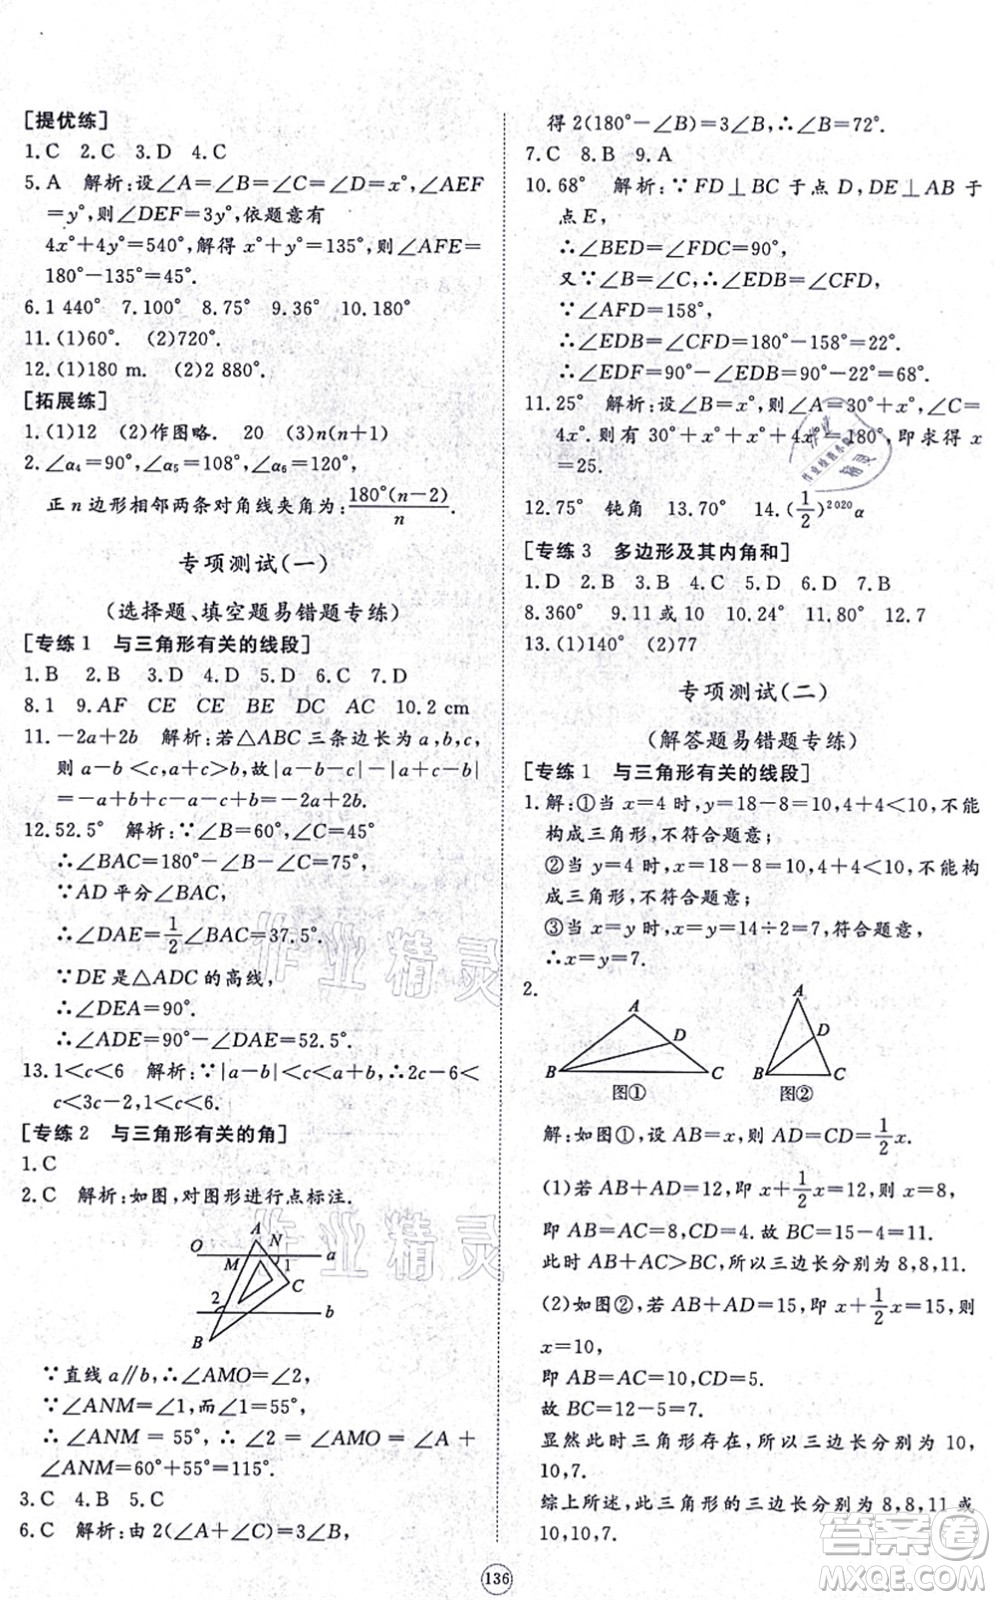 [提优练]
1.C 2.C 3.D 4.C
5.A 解析:设∠A=∠B=∠C=∠D=x°,∠AEF
=y°,则∠DEF=3y°,依题意有
4x°+4y°=540°,解得 x°+y°=135°,则∠AFE=
180°-135°=45°.
6.1 440° 7.100° 8.75° 9.36° 10.180°
11.(1)60°. (2)720°.
12.(1)180 m. (2)2 880°.
[拓展练]
1.(1)12 (2)作图略. 20 (3)n(n+1)
2.∠α₄=90°,∠α₅=108°,∠α₆=120°,
正 n 边形相邻两条对角线夹角为:180°(n-2)/n.
专项测试(一)
(选择题、填空题易错题专练)
[专练1 与三角形有关的线段]
1.B 2.B 3.D 4.D 5.D 6.C 7.D
8.1 9.AF CE CE BE DC AC 10.2 cm
11.-2a+2b 解析:若△ABC 三条边长为 a,b,c,
则 a-b<c,a+c>b,故|a-b-c|-|a+c-b|
=-a+b+c-a-c+b=-2a+2b.
12.52.5° 解析:∵∠B=60°,∠C=45°
∴∠BAC=180°-∠B-∠C=75°,
∵AD 平分∠BAC,
∴∠DAE=1/2∠BAC=37.5°.
∵DE 是△ADC 的高线,
∴∠DEA=90°.
∴∠ADE=90°-∠DAE=52.5°.
13.1<c<6 解析:∵|a-b|<c<a+b,∴2c-6<
c<3c-2,1<c<6.
[专练2 与三角形有关的角]
1.C
2.C 解析:如图,对图形进行点标注.
A
O M N 1 a
C
2 b
B
∵直线 a∥b,∴∠AMO=∠2,
∵∠ANM=∠1,而∠1=55°,
∴∠ANM = 55°, ∴∠2 = ∠AMO = ∠A +
∠ANM=60°+55°=115°.
3.C 4.B 5.C
6.C 解析:由 2(∠A+∠C)=3∠B,
得 2(180°-∠B)=3∠B,∴∠B=72°.
7.C 8.B 9.A
10.68° 解析:∵FD⊥BC 于点 D,DE⊥AB 于
点 E,
∴∠BED=∠FDC=90°,
又∵∠B=∠C,∴∠EDB=∠CFD,
∵∠AFD=158°,
∴∠EDB=∠CFD=180°-158°=22°.
∴∠EDF=90°-∠EDB=90°-22°=68°.
11.25° 解析:设∠B=x°,则∠A=30°+x°,∠C=
4x°.则有 30°+x°+x°+4x°=180°,即求得 x
=25.
12.75° 钝角 13.70° 14.(1/2)²⁰²⁰α
[专练3 多边形及其内角和]
1.D 2.D 3.B 4.C 5.D 6.D 7.B
8.360° 9.11 或 10 10.90° 11.10° 12.7
13.(1)140° (2)77
专项测试(二)
(解答题易错题专练)
[专练1 与三角形有关的线段]
1.解:①当 x=4 时,y=18-8=10,4+4<10,不能
构成三角形,不符合题意;
②当 y=4 时,x=18-8=10,4+4<10,不能构
成三角形,不符合题意;
③当 x=y 时,x=y=14÷2=7,符合题意.
∴x=y=7.
2.
A D B C 图①
A D B C 图②
解:如图①,设 AB=x,则 AD=CD=1/2x.
(1)若 AB+AD=12,即 x+1/2x=12,则 x=8,
即 AB=AC=8,CD=4.故 BC=15-4=11.
此时 AB+AC>BC,所以三边长分别为 8,8,11.
(2)如图②,若 AB+AD=15,即 x+1/2x=15,则
x=10,
即 AB=AC=10,CD=5.
故 BC=12-5=7.
显然此时三角形存在,所以三边长分别为 10,
10,7.
综上所述,此三角形的三边长分别为 8,8,11 或
10,10,7.
136
作业精灵
作业精灵
答案卷
MXQE.COM